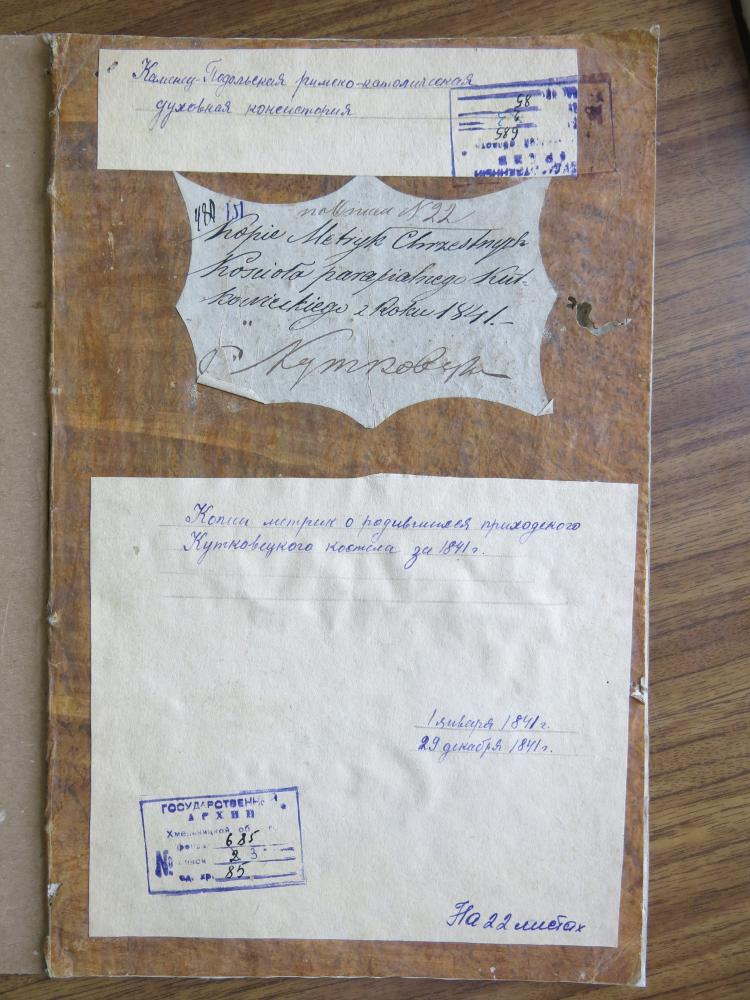 Каменец-Подольская римско-католическая
духовная консистория
685
85
480 151
по описи N. 22
Kopie Metryk Chrzestnych
Kościoła parafialnego Kut-
kowieckiego z Roku 1841.-
Кутковцы
Копии метрик о родившихся приходского
Кутковецкого костела за 1841 г.
1 января 1841 г.
29 декабря 1841 г.
ГОСУДАРСТВЕННЫЙ
АРХИВ
Хмельницкой обл.
фонд 685
№ описи 2 3
ед. хр. 85
На 22 листах